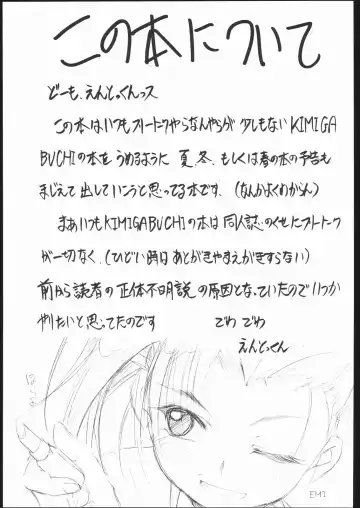 この本について
どーも、えんどっくんっス
この本はいつもフリートークやらなんやらが少しもないKIMIGA
BUCHIの本をうめるように夏、冬、もしくは春の本の予告も
まじえて出していこうと思ってる本です、(なんかよくわからん)
まあいつもKIMIGABUCHIの本は同人誌のくせにフリートーク
が一切なく、(ひどい時はあとがきやまえがきすらない)
前から読者の正体不明説の原因となっていたのでいつか
やりたいと思ってたのです でわでわ
えんどっくん
EMI